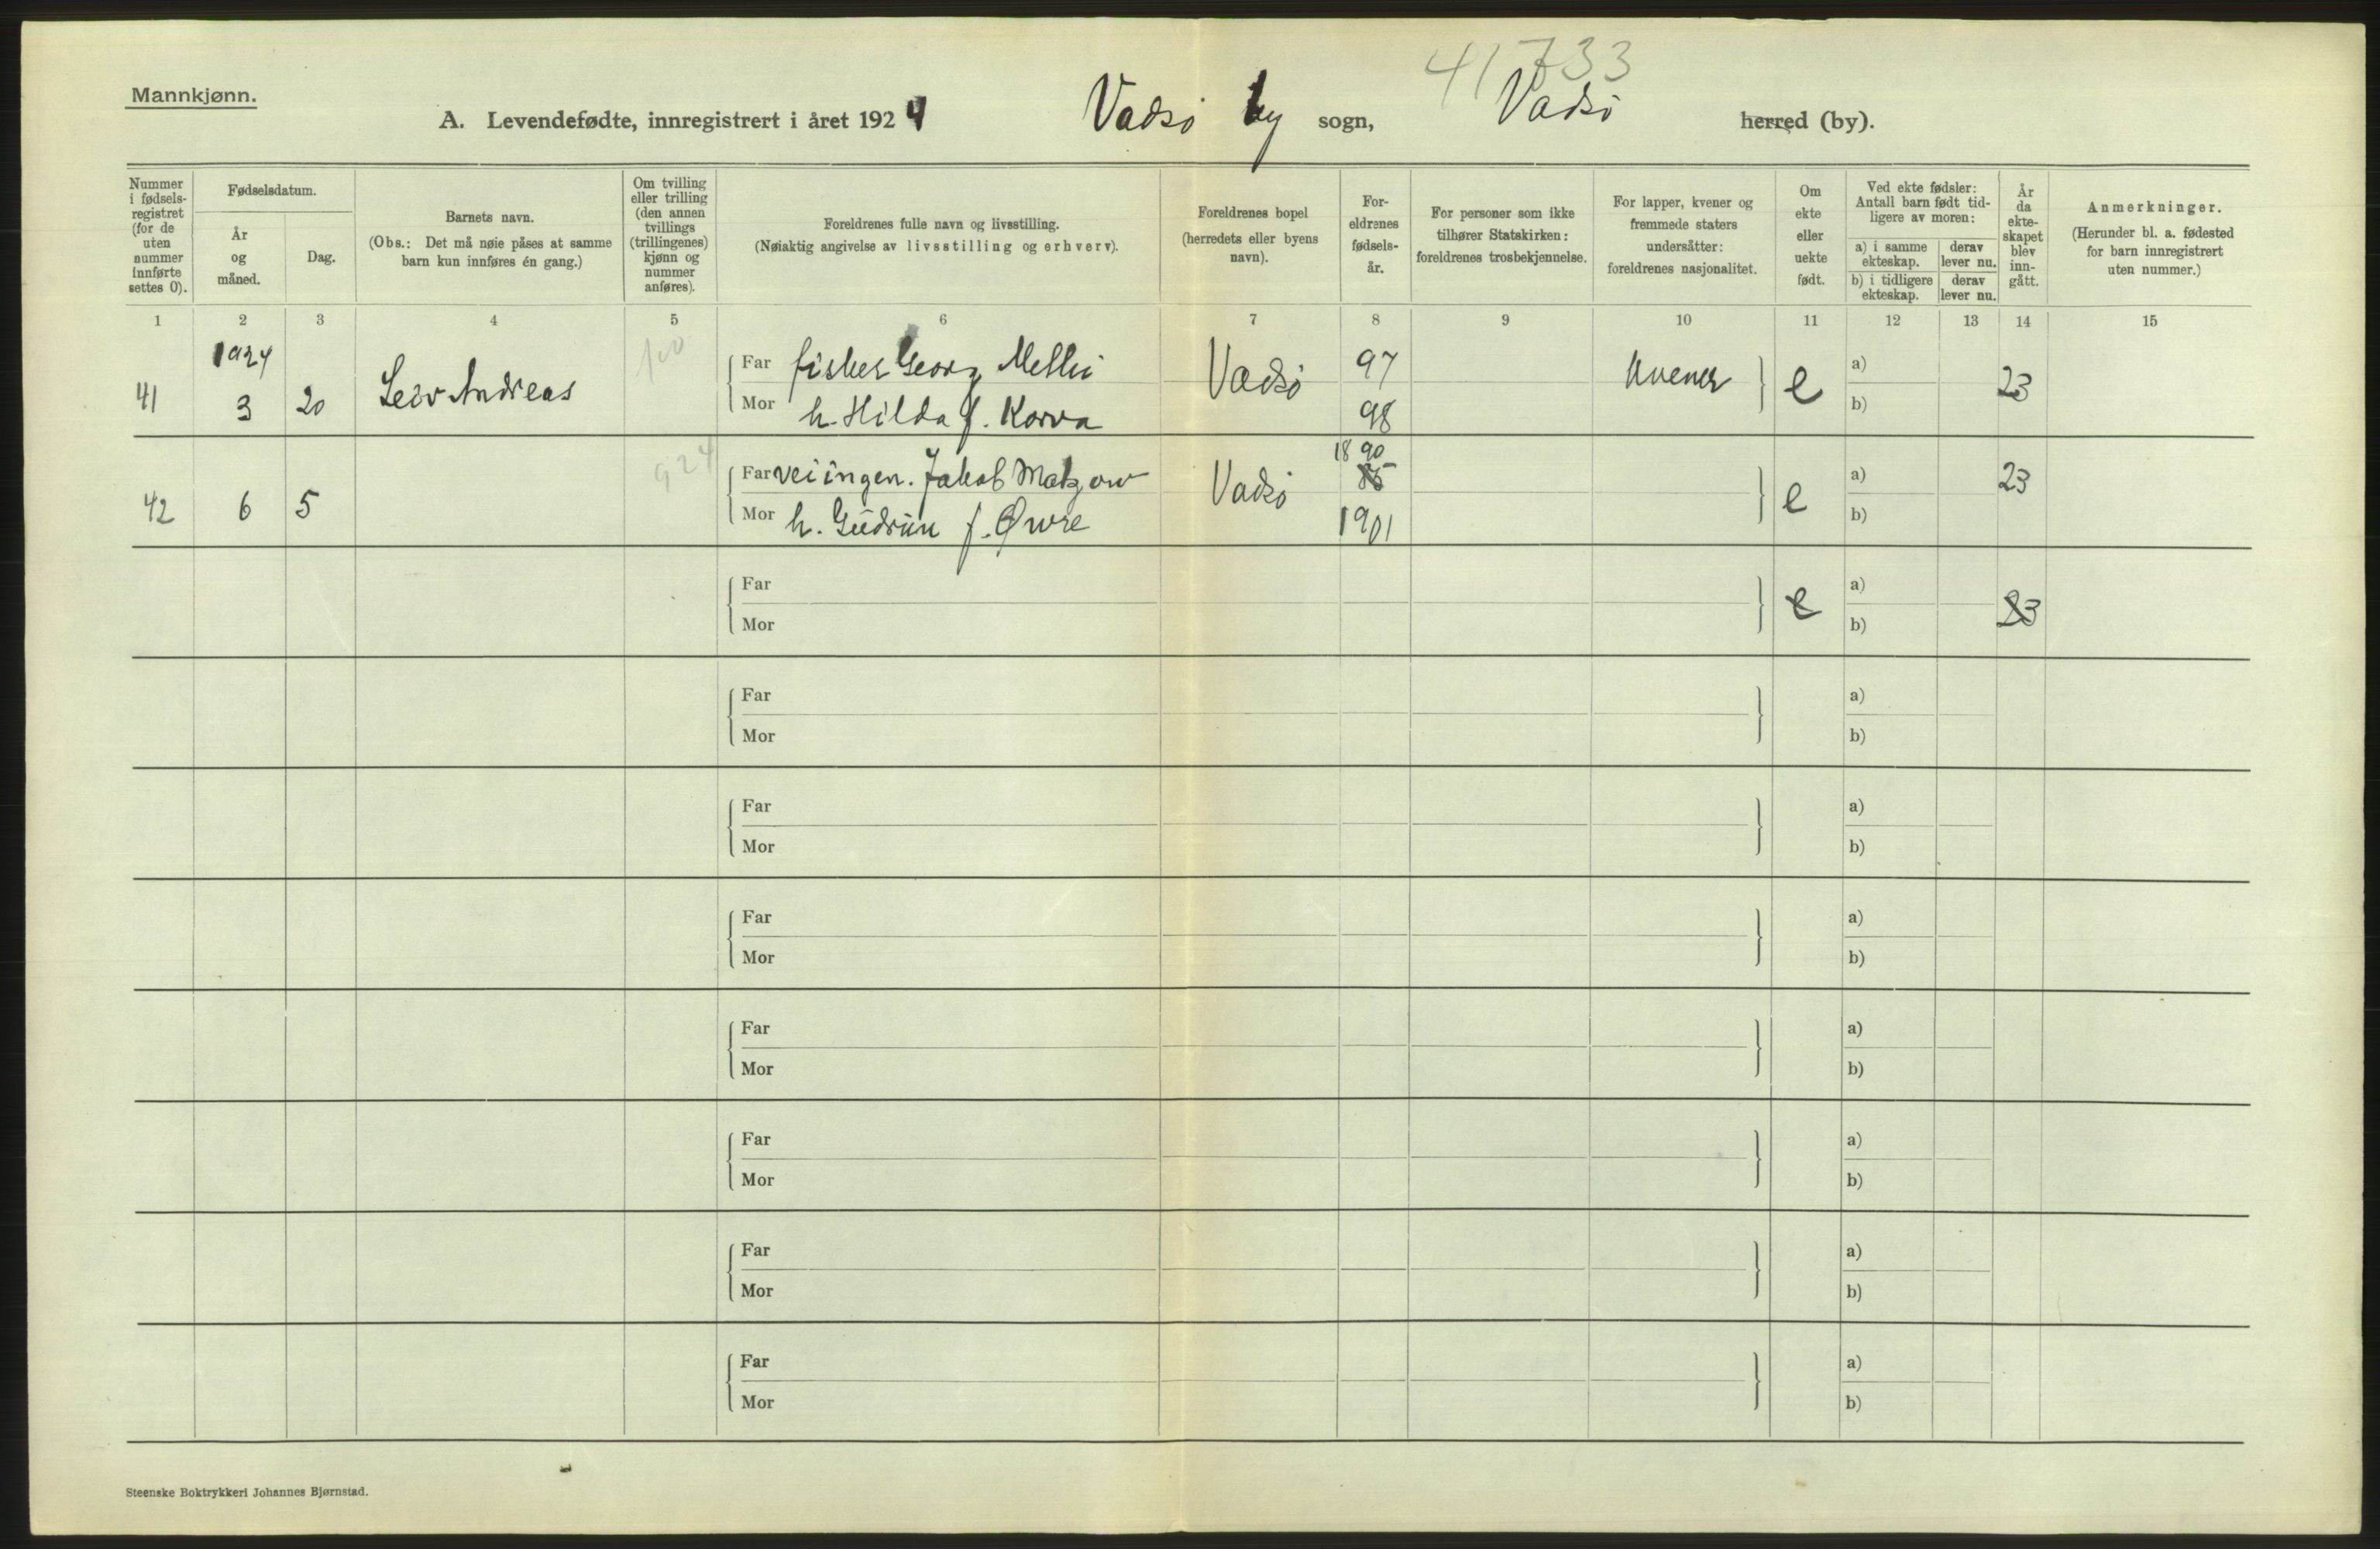 41733
Mannkjønn.
A. Levendefødte, innregistrert i året 1924 Vadsö by sogn, Vadsö herred (by).
Nummer i fødselsregistret (for de uten nummer innførte settes 0).
Fødselsdatum.
År og måned.
Dag.
Barnets navn.
(Obs.: Det må nøie påses at samme barn kun innføres én gang.)
Om tvilling eller trilling (den annen tvillings (trillingenes) kjønn og nummer anføres).
Foreldrenes fulle navn og livsstilling.
(Nøiaktig angivelse av livsstilling og erhverv).
Foreldrenes bopel (herredets eller byens navn).
For-
eldrenes
fødsels-
år.
For personer som ikke tilhører Statskirken: foreldrenes trosbekjennelse.
For lapper, kvener og fremmede staters undersåtter: foreldrenes nasjonalitet.
Om ekte eller uekte født.
Ved ekte fødsler:
Antall barn født tid-
ligere av moren:
a) i samme ekteskap.
derav lever nu.
b) i tidligere ekteskap.
derav lever nu.
År da ekte-skapet blev inn-gått.
Anmerkninger.
(Herunder bl. a. fødested for barn innregistrert uten nummer.)
1 2 3 4 5 6 7 8 9 10 11 12 13 14 15
1924
41 3 20 Leiv Andreas
Far fisker Georg Vadsö 97 Kvener e a) 23
Mor h. Hilda f. Korva 98 b)
1890
42 6 5 924
Far veiingen. Jakob Vadsö 85 e a) 23
Mor h. Gudrun f. Øwre 1901 b)
Far e a) 23
Mor b)
Far a)
Mor b)
Far a)
Mor b)
Far a)
Mor b)
Far a)
Mor b)
Far a)
Mor b)
Far a)
Mor b)
Far a)
Mor b)
Steenske Boktrykkeri Johannes Bjørnstad.